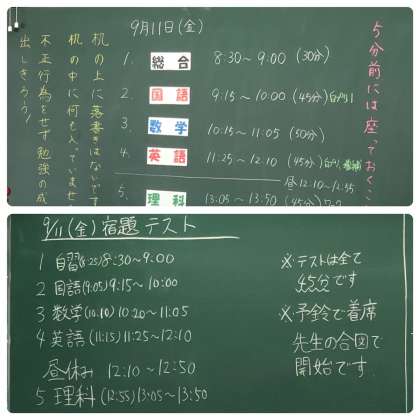 5分前には座っておくこ
9月11日(金)
1. 総合 8:30〜9:00 (30分)
2. 国語 9:15〜10:00 (45分)
3. 数学 10:15〜11:05 (50分)
4. 英語 11:25〜12:10 (45分)
昼12:10〜12:55
5. 理科 13:05〜13:50 (45分)
机の上に落書きはないです
机の中に何も入っていませ
不正行為をせず勉強の成
出しきろう!
9/11(金)宿題テスト
1 自習(8:25)8:30〜9:00
2 国語(9:05)9:15〜10:00
3 数学(10:10)10:20〜11:05
4 英語(11:15)11:25〜12:10
昼休み 12:10〜12:50
5 理科(12:55)13:05〜13:50
※テストは全て
45分です
※予鈴で着席
先生の合図で
開始です